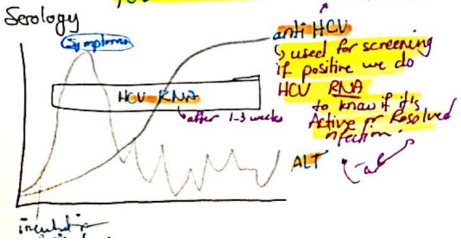 Serology
Symptoms
anti HCV
↳ used for screening
if positive we do
HCV RNA
to know if it's
Active or Resolved
infection.
HCV RNA
↳ after 1-3 weeks
ALT